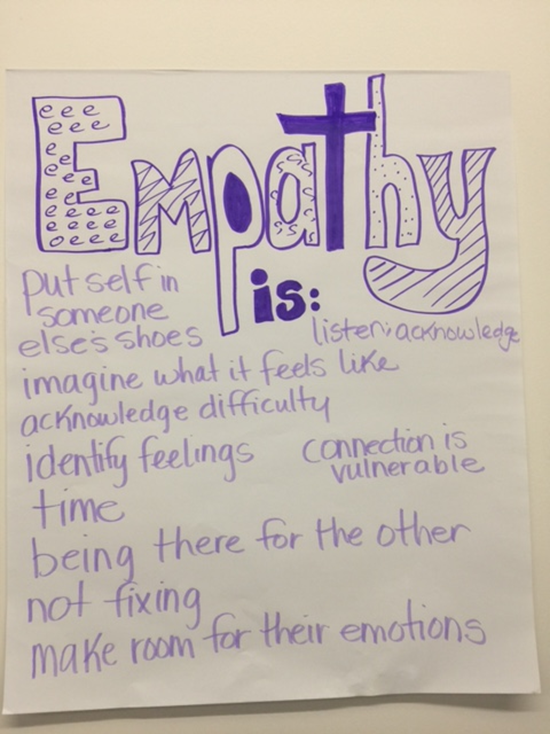 Empathy
is:
put self in
someone
else's shoes
listen; acknowledge
imagine what it feels like
acknowledge difficulty
identify feelings
connection is
vulnerable
time
being there for the other
not fixing
make room for their emotions